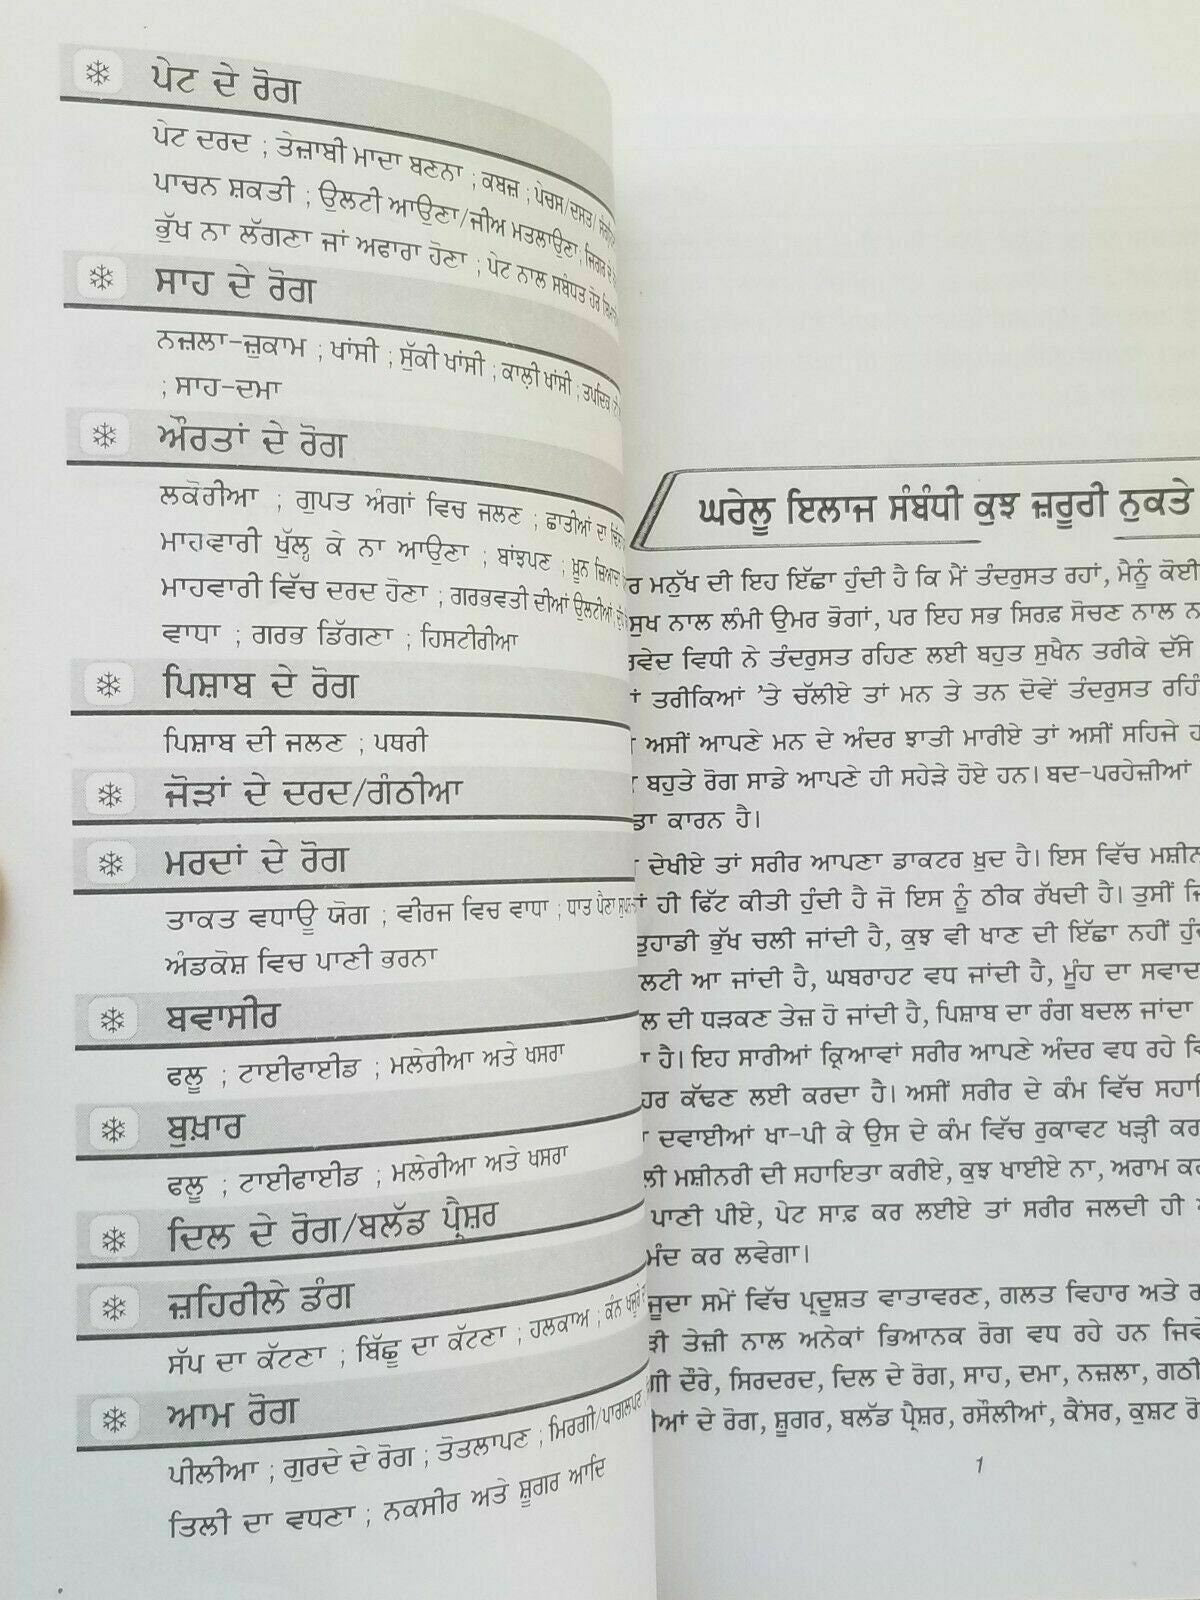 ਪੇਟ ਦੇ ਰੋਗ
ਪੇਟ ਦਰਦ ; ਤੇਜ਼ਾਬੀ ਮਾਦਾ ਬਣਨਾ ; ਕਬਜ਼ ; ਪੇਚਸ/ਦਸਤ/
ਪਾਚਨ ਸ਼ਕਤੀ ; ਉਲਟੀ ਆਉਣਾ/ਜੀਅ ਮਤਲਾਉਣਾ; ਜਿਗਰ ਦੇ
ਭੁੱਖ ਨਾ ਲੱਗਣਾ ਜਾਂ ਅਫਾਰਾ ਹੋਣਾ ; ਪੇਟ ਨਾਲ ਸਬੰਧਤ ਹੋਰ
ਸਾਹ ਦੇ ਰੋਗ
ਨਜ਼ਲਾ-ਜ਼ੁਕਾਮ ; ਖਾਂਸੀ ; ਸੁੱਕੀ ਖਾਂਸੀ ; ਕਾਲੀ ਖਾਂਸੀ ; ਤਪਦਿਕ
; ਸਾਹ-ਦਮਾ
ਔਰਤਾਂ ਦੇ ਰੋਗ
ਲਕੋਰੀਆ ; ਗੁਪਤ ਅੰਗਾਂ ਵਿਚ ਜਲਣ ; ਛਾਤੀਆਂ ਦਾ
ਮਾਹਵਾਰੀ ਖੁੱਲ੍ਹ ਕੇ ਨਾ ਆਉਣਾ ; ਬਾਂਝਪਣ ; ਖ਼ੂਨ ਜ਼ਿਆਦਾ
ਮਾਹਵਾਰੀ ਵਿੱਚ ਦਰਦ ਹੋਣਾ ; ਗਰਭਵਤੀ ਦੀਆਂ ਉਲਟੀਆਂ,
ਵਾਧਾ ; ਗਰਭ ਡਿੱਗਣਾ ; ਹਿਸਟੀਰੀਆ
ਪਿਸ਼ਾਬ ਦੇ ਰੋਗ
ਪਿਸ਼ਾਬ ਦੀ ਜਲਣ ; ਪਥਰੀ
ਜੋੜਾਂ ਦੇ ਦਰਦ/ਗੰਠੀਆ
ਮਰਦਾਂ ਦੇ ਰੋਗ
ਤਾਕਤ ਵਧਾਊ ਯੋਗ ; ਵੀਰਜ ਵਿਚ ਵਾਧਾ ; ਧਾਤ ਪੈਣਾ
ਅੰਡਕੋਸ਼ ਵਿਚ ਪਾਣੀ ਭਰਨਾ
ਬਵਾਸੀਰ
ਫਲੂ ; ਟਾਈਫਾਈਡ ; ਮਲੇਰੀਆ ਅਤੇ ਖਸਰਾ
ਬੁਖ਼ਾਰ
ਫਲੂ ; ਟਾਈਫਾਈਡ ; ਮਲੇਰੀਆ ਅਤੇ ਖਸਰਾ
ਦਿਲ ਦੇ ਰੋਗ/ਬਲੱਡ ਪ੍ਰੈਸ਼ਰ
ਜ਼ਹਿਰੀਲੇ ਡੰਗ
ਸੱਪ ਦਾ ਕੱਟਣਾ ; ਬਿੱਛੂ ਦਾ ਕੱਟਣਾ ; ਹਲਕਾਅ ; ਕੰਨ ਖਜੂਰੇ
ਆਮ ਰੋਗ
ਪੀਲੀਆ ; ਗੁਰਦੇ ਦੇ ਰੋਗ ; ਤੋਤਲਾਪਣ ; ਮਿਰਗੀ/ਪਾਗਲਪਣ
ਤਿਲੀ ਦਾ ਵਧਣਾ ; ਨਕਸੀਰ ਅਤੇ ਸ਼ੂਗਰ ਆਦਿ
ਘਰੇਲੂ ਇਲਾਜ ਸੰਬੰਧੀ ਕੁਝ ਜ਼ਰੂਰੀ ਨੁਕਤੇ
ਮਨੁੱਖ ਦੀ ਇਹ ਇੱਛਾ ਹੁੰਦੀ ਹੈ ਕਿ ਮੈਂ ਤੰਦਰੁਸਤ ਰਹਾਂ, ਮੈਨੂੰ ਕੋਈ
ਸੁਖ ਨਾਲ ਲੰਮੀ ਉਮਰ ਭੋਗਾਂ, ਪਰ ਇਹ ਸਭ ਸਿਰਫ਼ ਸੋਚਣ ਨਾਲ
ਵਿਧੀ ਨੇ ਤੰਦਰੁਸਤ ਰਹਿਣ ਲਈ ਬਹੁਤ ਸੁਖੈਨ ਤਰੀਕੇ ਦੱਸੇ
ਤਰੀਕਿਆਂ 'ਤੇ ਚੱਲੀਏ ਤਾਂ ਮਨ ਤੇ ਤਨ ਦੋਵੇਂ ਤੰਦਰੁਸਤ
ਅਸੀਂ ਆਪਣੇ ਮਨ ਦੇ ਅੰਦਰ ਝਾਤੀ ਮਾਰੀਏ ਤਾਂ ਅਸੀਂ ਸਹਿਜੇ
ਬਹੁਤੇ ਰੋਗ ਸਾਡੇ ਆਪਣੇ ਹੀ ਸਹੇੜੇ ਹੋਏ ਹਨ। ਬਦ-ਪਰਹੇਜ਼ੀਆਂ
ਕਾਰਨ ਹੈ।
ਦੇਖੀਏ ਤਾਂ ਸਰੀਰ ਆਪਣਾ ਡਾਕਟਰ ਖ਼ੁਦ ਹੈ। ਇਸ ਵਿੱਚ
ਹੀ ਫਿੱਟ ਕੀਤੀ ਹੁੰਦੀ ਹੈ ਜੋ ਇਸ ਨੂੰ ਠੀਕ ਰੱਖਦੀ ਹੈ। ਤੁਸੀਂ
ਤੁਹਾਡੀ ਭੁੱਖ ਚਲੀ ਜਾਂਦੀ ਹੈ, ਕੁਝ ਵੀ ਖਾਣ ਦੀ ਇੱਛਾ ਨਹੀਂ
ਆ ਜਾਂਦੀ ਹੈ, ਘਬਰਾਹਟ ਵਧ ਜਾਂਦੀ ਹੈ, ਮੂੰਹ ਦਾ ਸਵਾਦ
ਦੀ ਧੜਕਣ ਤੇਜ਼ ਹੋ ਜਾਂਦੀ ਹੈ, ਪਿਸ਼ਾਬ ਦਾ ਰੰਗ ਬਦਲ ਜਾਂਦਾ
ਹੈ। ਇਹ ਸਾਰੀਆਂ ਕ੍ਰਿਆਵਾਂ ਸਰੀਰ ਆਪਣੇ ਅੰਦਰ ਵਧ ਰਹੇ
ਕੱਢਣ ਲਈ ਕਰਦਾ ਹੈ। ਅਸੀਂ ਸਰੀਰ ਦੇ ਕੰਮ ਵਿੱਚ
ਦਵਾਈਆਂ ਖਾ-ਪੀ ਕੇ ਉਸ ਦੇ ਕੰਮ ਵਿੱਚ ਰੁਕਾਵਟ ਖੜ੍ਹੀ
ਮਸ਼ੀਨਰੀ ਦੀ ਸਹਾਇਤਾ ਕਰੀਏ, ਕੁਝ ਖਾਈਏ ਨਾ, ਅਰਾਮ
ਪਾਣੀ ਪੀਏ, ਪੇਟ ਸਾਫ਼ ਕਰ ਲਈਏ ਤਾਂ ਸਰੀਰ ਜਲਦੀ ਹੀ
ਕਰ ਲਵੇਗਾ।
ਸਮੇਂ ਵਿੱਚ ਪ੍ਰਦੂਸ਼ਤ ਵਾਤਾਵਰਣ, ਗਲਤ ਵਿਹਾਰ ਅਤੇ
ਤੇਜ਼ੀ ਨਾਲ ਅਨੇਕਾਂ ਭਿਆਨਕ ਰੋਗ ਵਧ ਰਹੇ ਹਨ
ਦੌਰੇ, ਸਿਰਦਰਦ, ਦਿਲ ਦੇ ਰੋਗ, ਸਾਹ, ਦਮਾ, ਨਜ਼ਲਾ,
ਦੇ ਰੋਗ, ਸ਼ੂਗਰ, ਬਲੱਡ ਪ੍ਰੈਸ਼ਰ, ਰਸੌਲੀਆਂ, ਕੈਂਸਰ, ਕੁਸ਼ਟ
1